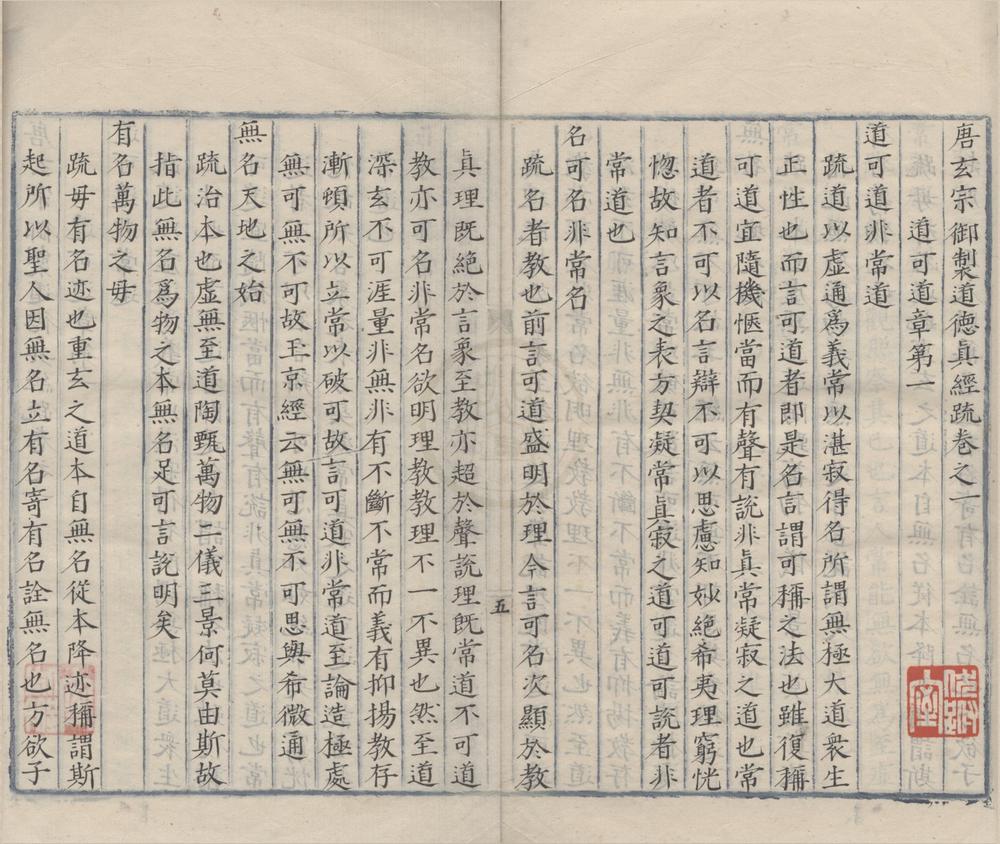 唐玄宗御製道德眞經疏卷之一
道可道章第一
道可道非常道
疏道以虛通爲義常以湛寂得名所謂無極大道衆生
正性也而言可道者即是名言謂可稱之法也雖復稱
可道宜隨機愜當而有聲有說非眞常凝寂之道也常
道者不可以名言辯不可以思慮知妙絶希夷理窮恍
惚故知言象之表方契凝常眞寂之道可道可說者非
常道也
名可名非常名
疏名者教也前言可道盛明於理今言可名次顯於教
五
眞理既絶於言象至教亦超於聲說理既常道不可道
教亦可名非常名欲明理教教理不一不異也然至道
深玄不可涯量非無非有不斷不常而義有抑揚教存
漸頓所以立常以破可故言可道非常道至論造極處
無可無不可故玉京經云無可無不可思與希微通
無名天地之始
疏治本也虛無至道陶甄萬物二儀三景何莫由斯故
指此無名爲物之本無名足可言說明矣
有名萬物之毋
疏毋有名迹也重玄之道本自無名從本降迹稱謂斯
起所以聖人因無名立有名寄有名詮無名也方欲子